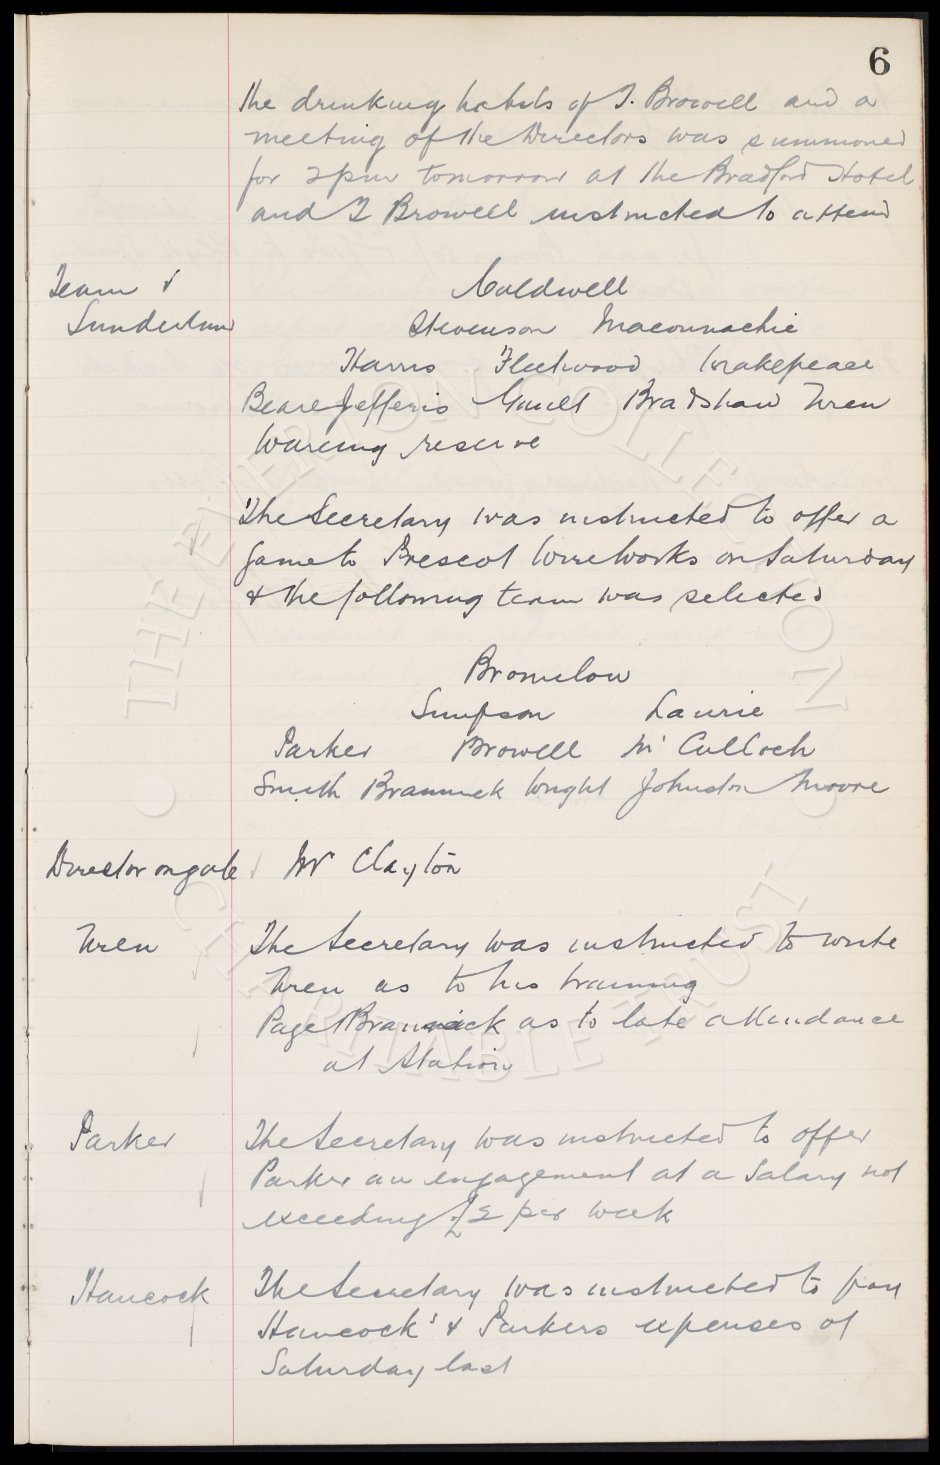 6
the drinking habits of T. Browell and a
meeting of the Directors was summoned
for 2pm tomorrow at the Bradford Hotel
and T Browell instructed to attend
Team v
Sunderland
Caldwell
Stevenson Maconnachie
Harris Fleetwood Makepeace
Beare Jefferis Gault Bradshaw Wren
Wareing reserve
The Secretary was instructed to offer a
game to Prescot Wireworks on Saturday
& the following team was selected
Bromilow
Simpson Laurie
Parker Browell Mc Culloch
Smith Brannick Wright Johnston Moore
Director on gate Mr Clayton
Wren The Secretary was instructed to write
Wren as to his training
Page & Brannick as to late attendance
at Station
Parker The Secretary was instructed to offer
Parker an engagement at a Salary not
exceeding £2 per week
Hancock The Secretary was instructed to pay
Hancock's & Parkers expenses of
Saturday last
THE EVERTON COLLECTION
CHARITABLE TRUST